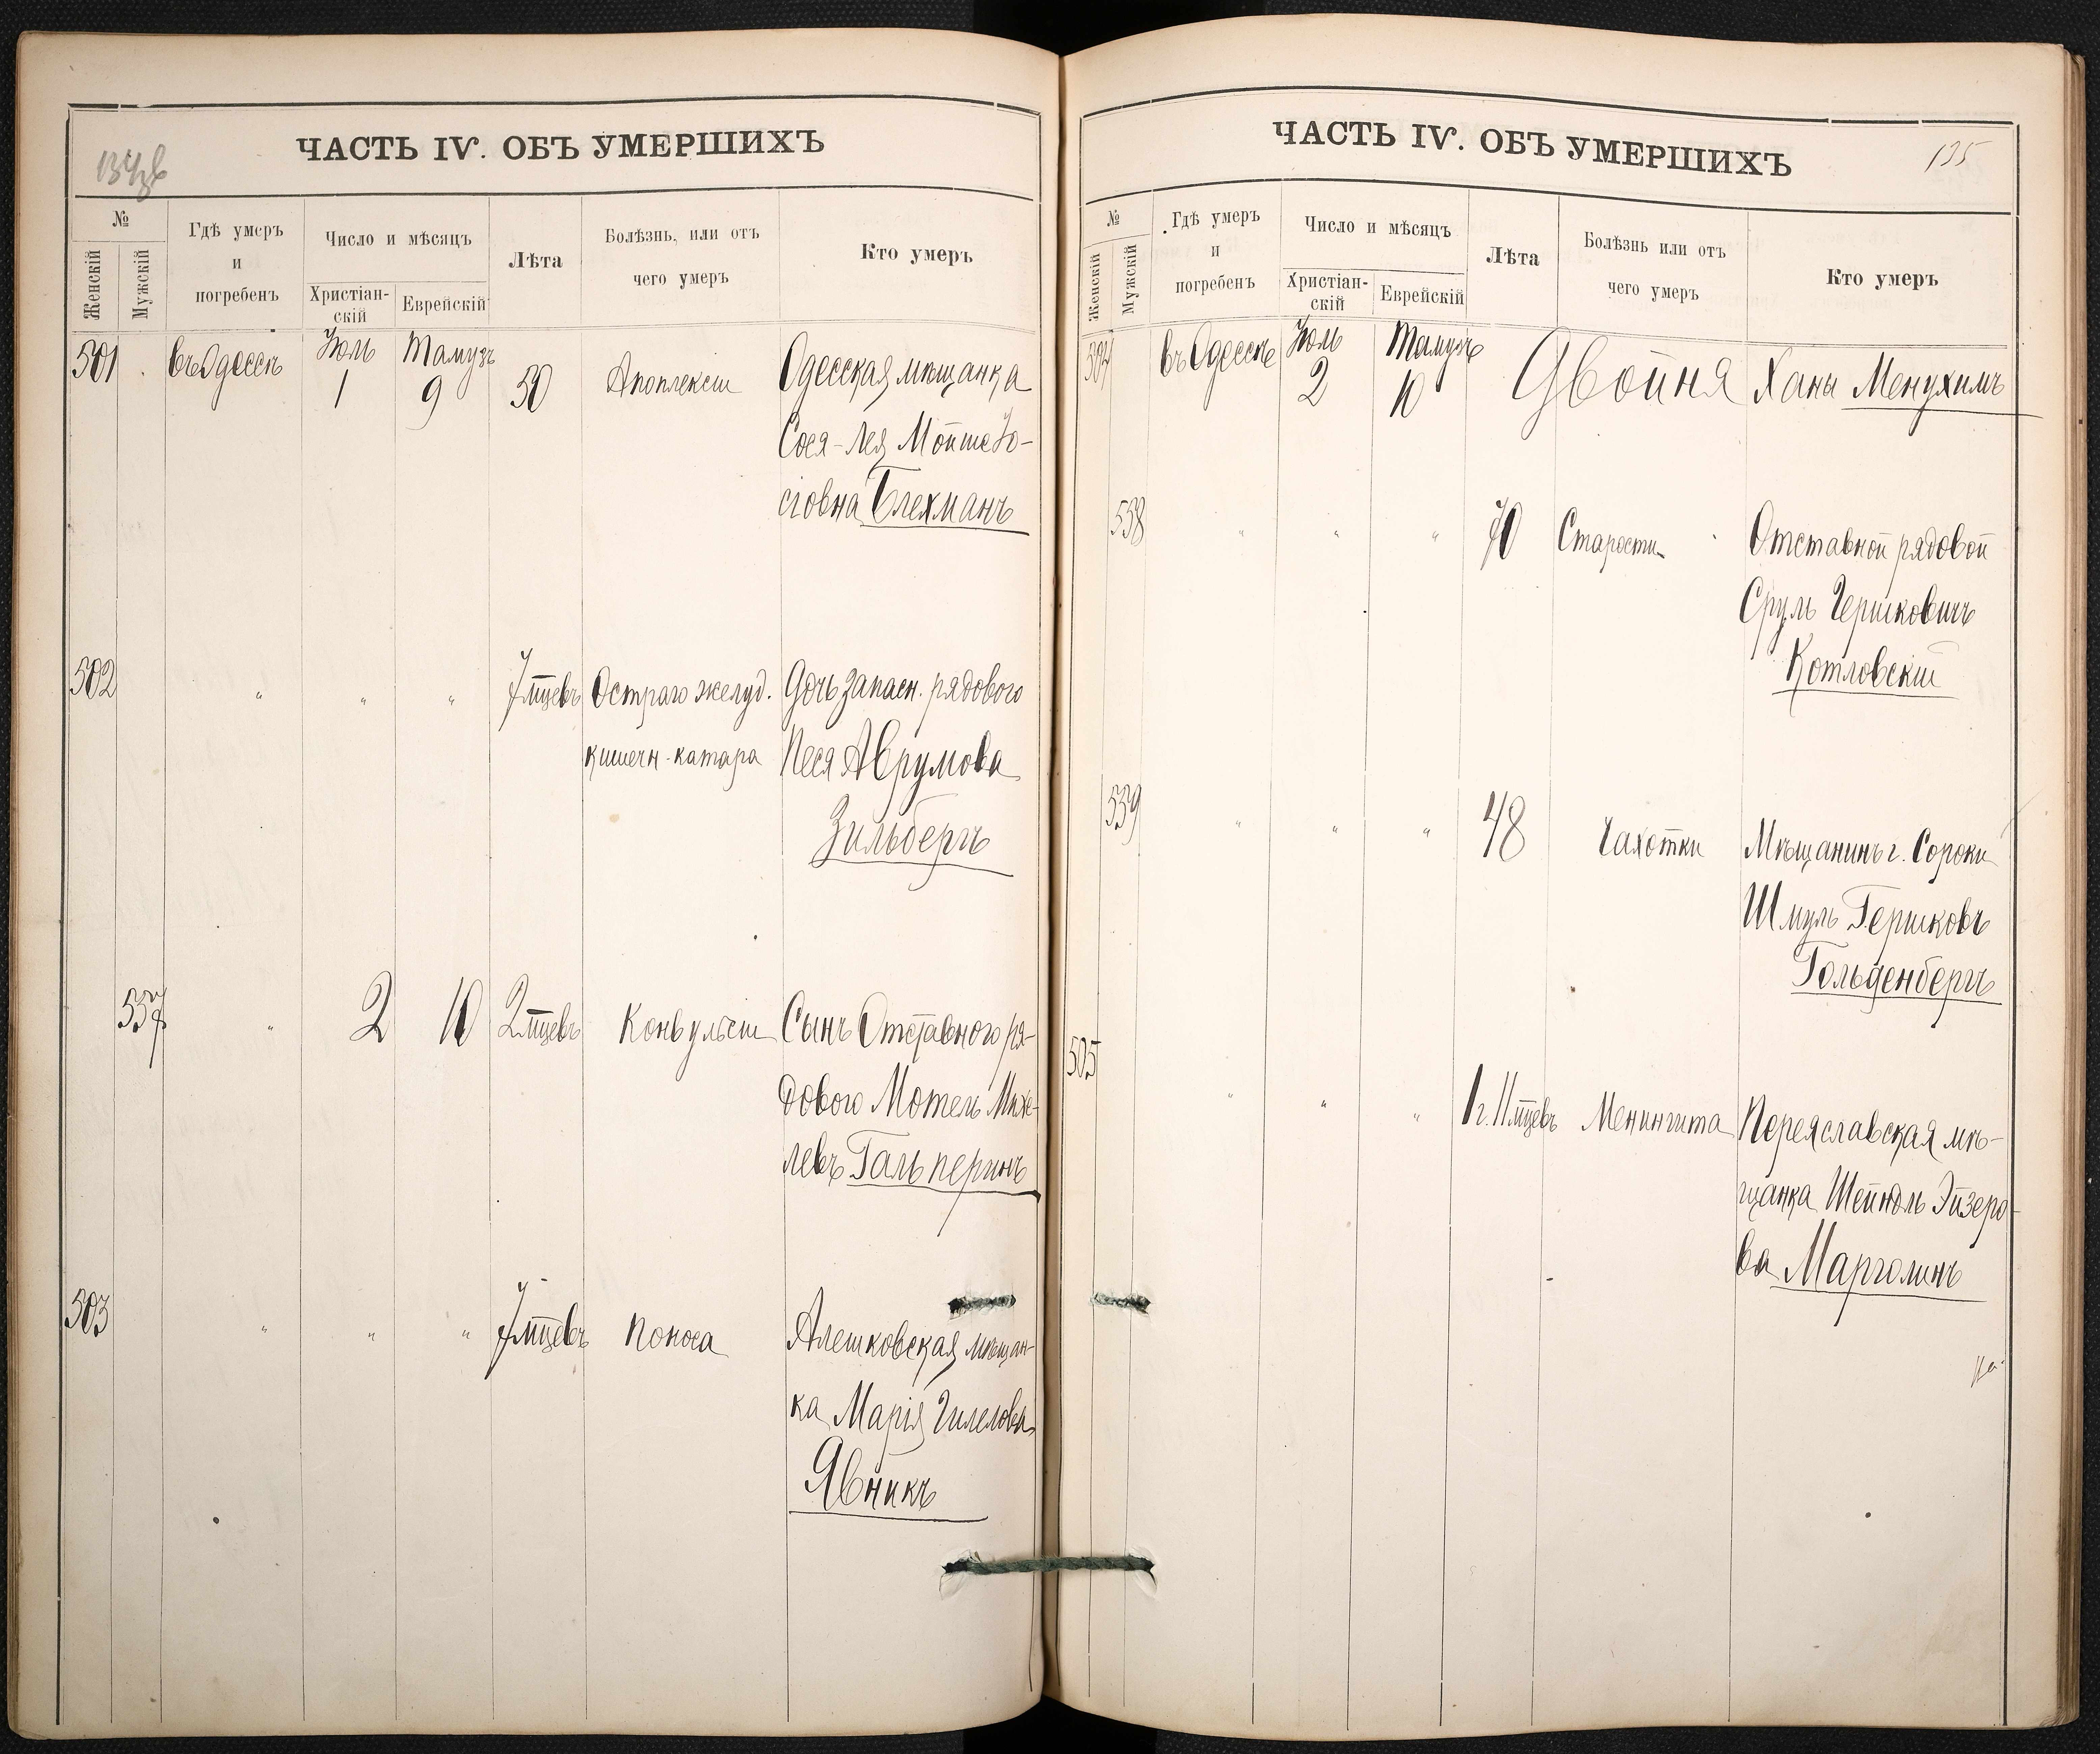 ЧАСТЬ IV. ОБЪ УМЕРШИХЪ
№
Женскій
Мужскій
Гдѣ умеръ
и
погребенъ
Число и мѣсяцъ
Христіан-
скій
Еврейскій
Лѣта
Болѣзнь, или отъ
чего умеръ
Кто умеръ
501 въ Одессѣ Іюль 1 Тамузъ 9 50 Апоплексіи Одесская мѣщанка
Сося-Лея Мойше Іо-
сіовна Блехманъ
502 " " " 7 мцевъ Остраго желуд. Дочь запасн. рядового
кишечн. катара Песя Аврумова
Зильбергъ
537 " 2 10 2 мцевъ Конвульсіи Сынъ Отставного ря-
дового Мотель Михе-
левъ Гальперинъ
503 " " " 7 мцевъ Поноса Алешковская мѣщан-
ка Марія Гилелова
Явникъ
ЧАСТЬ IV. ОБЪ УМЕРШИХЪ
135
№
Женскій
Мужскій
Гдѣ умеръ
и
погребенъ
Число и мѣсяцъ
Христіан-
скій
Еврейскій
Лѣта
Болѣзнь или отъ
чего умеръ
Кто умеръ
504 въ Одессѣ Іюль 2 Тамузъ 10 Двойня Ханы Менухимъ
538 " " " 70 Старости Отставной рядовой
Сруль Гершковичъ
Котловскій
539 " " " 48 Чахотки Мѣщанинъ г. Сороки
Шмуль Гершковъ
Гольденбергъ
505 " " " 1 г. 11 мцевъ Менингита Переяславская мѣ-
щанка Шейндль Эйзеро-
ва Марголинъ